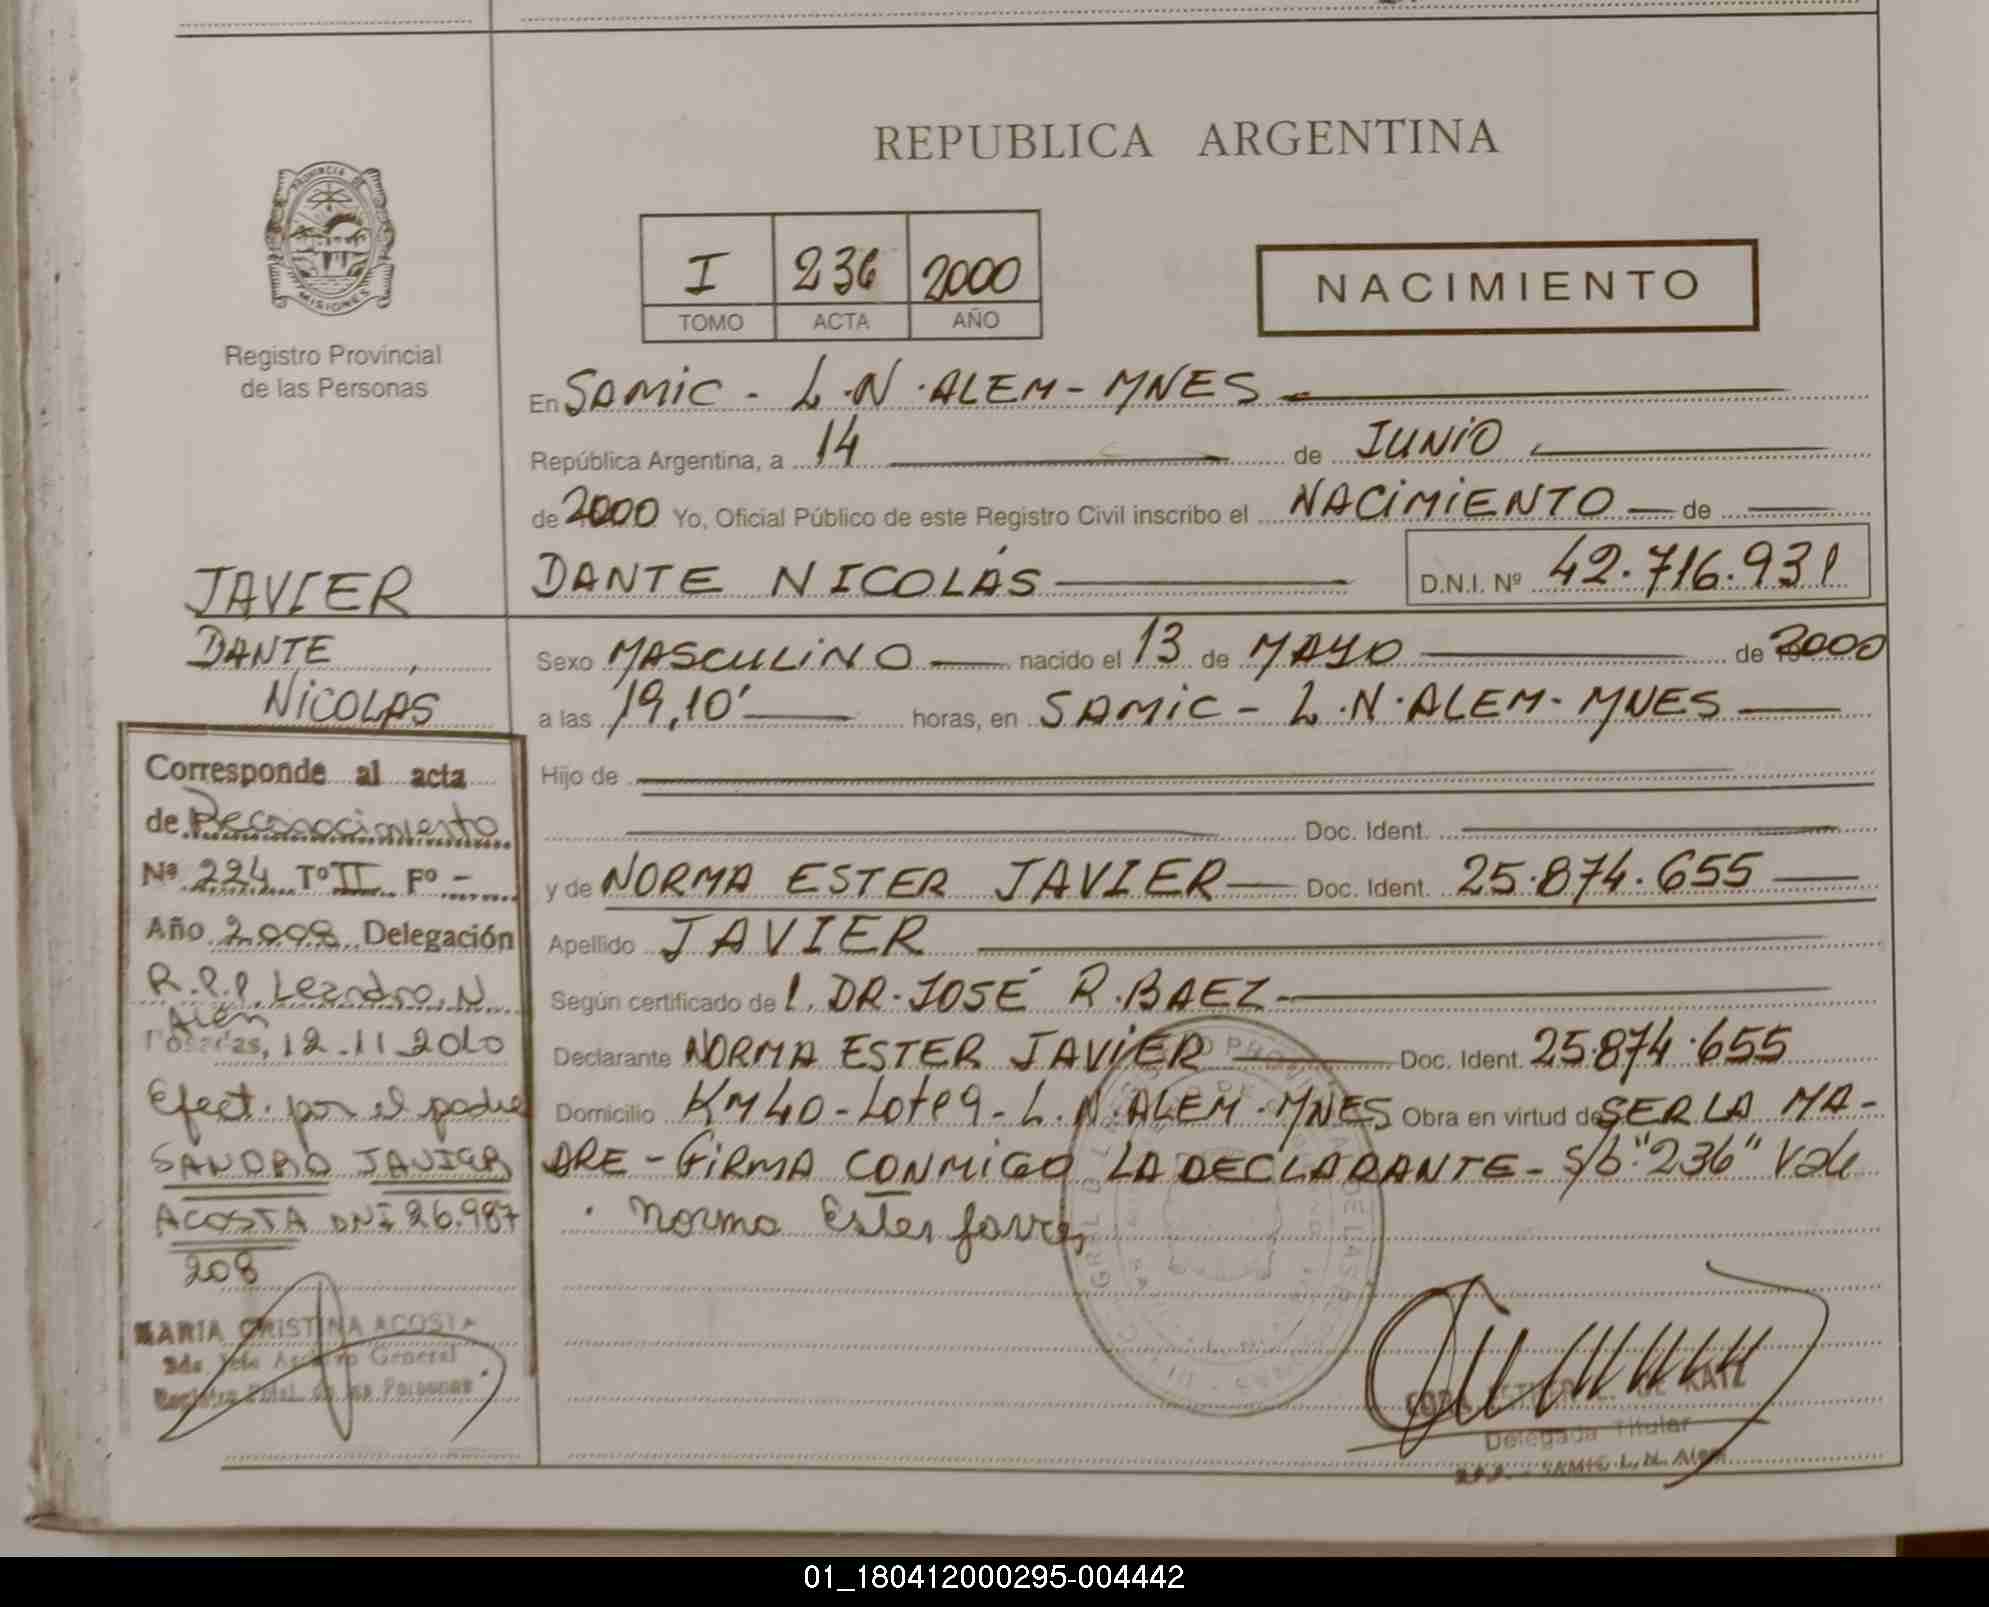 REPUBLICA ARGENTINA
PROVINCIA DE
MISIONES
Registro Provincial
de las Personas
I 236 2000
TOMO ACTA AÑO
NACIMIENTO
En SAMIC - L.N. ALEM - MNES
República Argentina, a 14 de JUNIO
de 2000 Yo, Oficial Público de este Registro Civil inscribo el NACIMIENTO de
DANTE NICOLÁS D.N.I. Nº 42.716.931
JAVIER
DANTE,
NICOLAS
Sexo MASCULINO nacido el 13 de MAYO de 2000
a las 19,10' horas, en SAMIC - L.N. ALEM - MNES
Hijo de
Doc. Ident.
y de NORMA ESTER JAVIER Doc. Ident. 25.874.655
Apellido JAVIER
Según certificado de l. DR. JOSÉ R. BAEZ
Declarante NORMA ESTER JAVIER Doc. Ident. 25.874.655
Domicilio KM 40 - Lote 9 - L.N. ALEM - MNES Obra en virtud de SER LA MA-
DRE - FIRMA CONMIGO LA DECLARANTE - S/b: "236" Vale
Norma Ester Javier
Corresponde al acta
de Reconocimiento
Nº 224 Tº II Fº -
Año 2008 Delegación
R.P.P. Leandro. N.
Alem
Posadas, 12.11.2010
Efect. por el padre
SANDRO JAVIER
ACOSTA DNI 26.987
208
MARIA CRISTINA ACOSTA
2da. Jefe Archivo General
Registro Pcial. de las Personas
DE KATZ
Delegada Titular
R.P.P. - SAMIC L.N. Alem
01_180412000295-004442